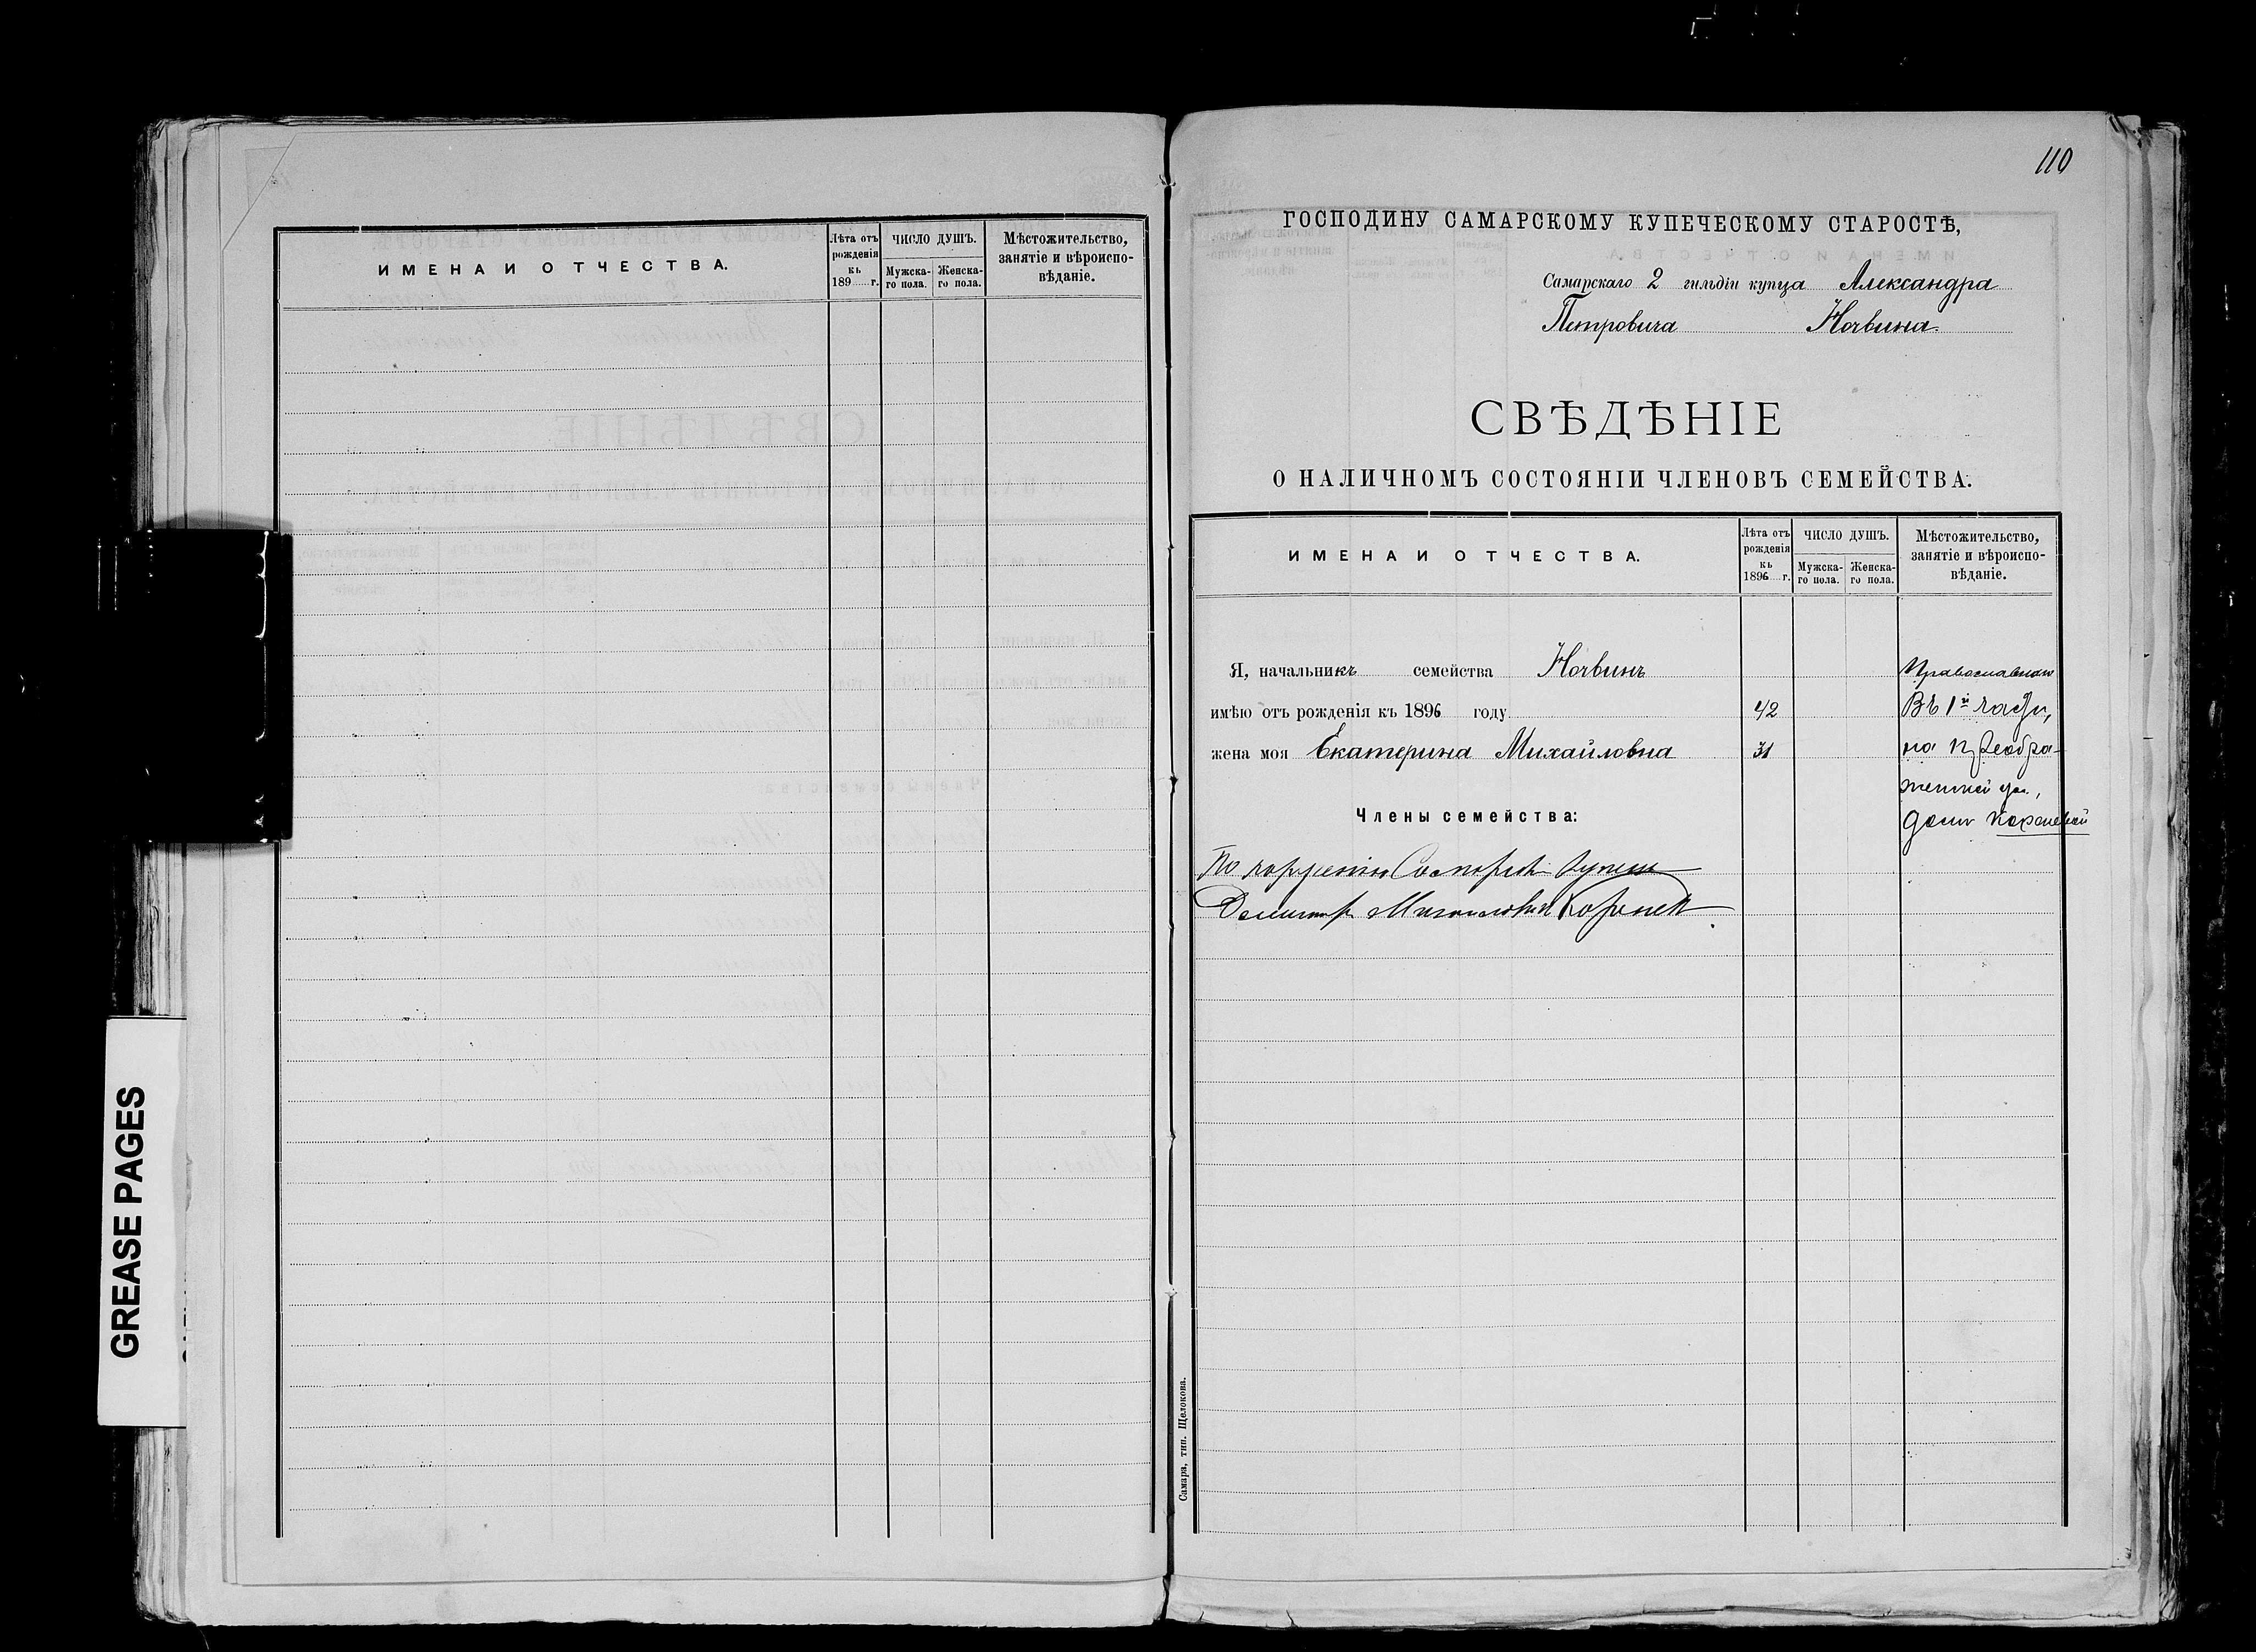 ИМЕНА И ОТЧЕСТВА.
Лѣта отъ рожденія къ 189 г.
ЧИСЛО ДУШЪ.
Мужска-го пола.
Женска-го пола.
Мѣстожительство, занятіе и вѣроиспо-вѣданіе.
GREASE PAGES
110
ГОСПОДИНУ САМАРСКОМУ КУПЕЧЕСКОМУ СТАРОСТѢ,
Самарскаго 2 гильдіи купца Александра
Петровича
СВѢДѢНІЕ
О НАЛИЧНОМЪ СОСТОЯНІИ ЧЛЕНОВЪ СЕМЕЙСТВА.
ИМЕНА И ОТЧЕСТВА.
Лѣта отъ рожденія къ 1896 г.
ЧИСЛО ДУШЪ.
Мужска-го пола.
Женска-го пола.
Мѣстожительство, занятіе и вѣроиспо-вѣданіе.
Я, начальникъ семейства
имѣю отъ рожденія къ 1896 году 42 Въ 1й части,
жена моя Екатерина Михайловна 31 на Преобра-
женской ул.,
Члены семейства: домъ
Самара, тип. Щелокова.